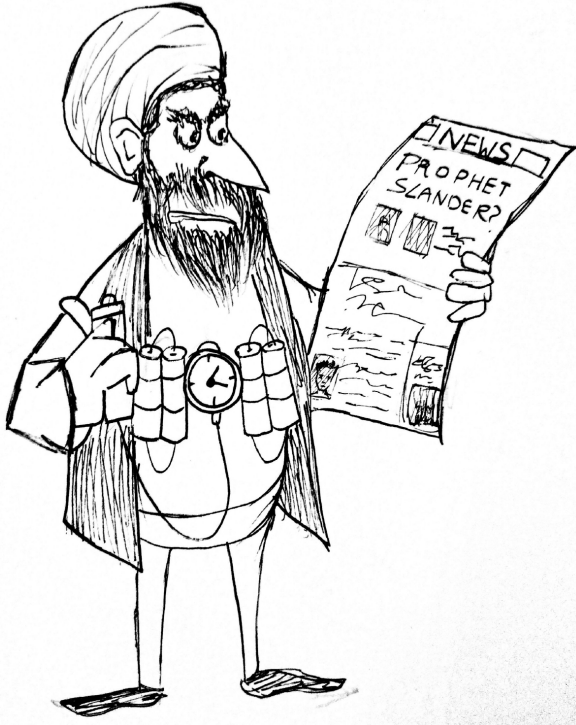 NEWS
PROPHET
SLANDER?